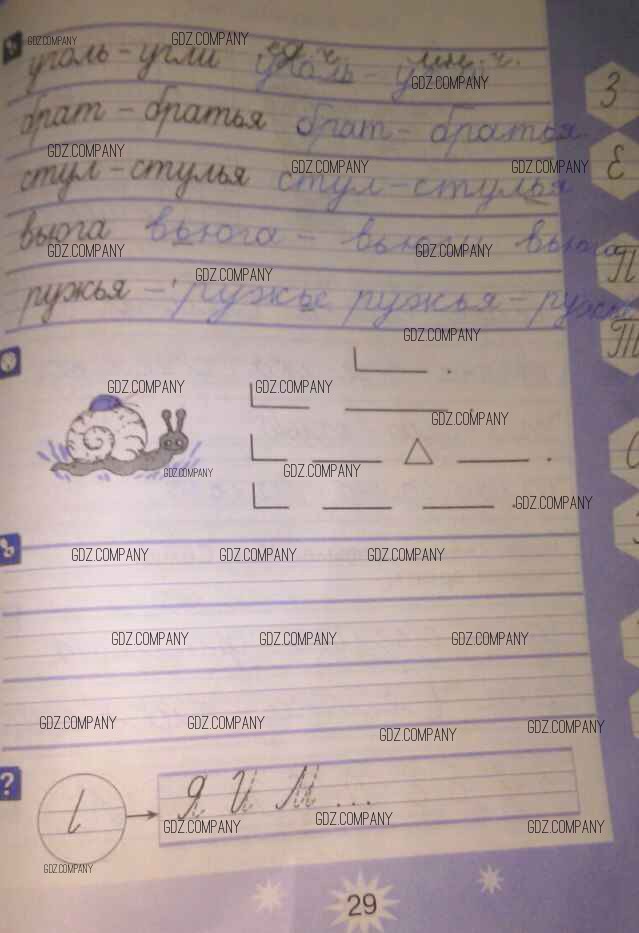 GDZ.COMPANY GDZ.COMPANY
ед. ч. мн. ч.
уголь – угли уголь – у
GDZ.COMPANY
брат – братья брат – братья
GDZ.COMPANY GDZ.COMPANY GDZ.COMPANY
стул – стулья стул – стулья
вьюга вьюга – вьюги вьюга
GDZ.COMPANY GDZ.COMPANY
GDZ.COMPANY
ружья – ружье ружья –
GDZ.COMPANY
GDZ.COMPANY GDZ.COMPANY
GDZ.COMPANY
GDZ.COMPANY GDZ.COMPANY
GDZ.COMPANY
GDZ.COMPANY GDZ.COMPANY GDZ.COMPANY
GDZ.COMPANY GDZ.COMPANY GDZ.COMPANY
GDZ.COMPANY GDZ.COMPANY GDZ.COMPANY GDZ.COMPANY
? Я И М ...
GDZ.COMPANY GDZ.COMPANY GDZ.COMPANY
GDZ.COMPANY
29
З
Е
П
Т